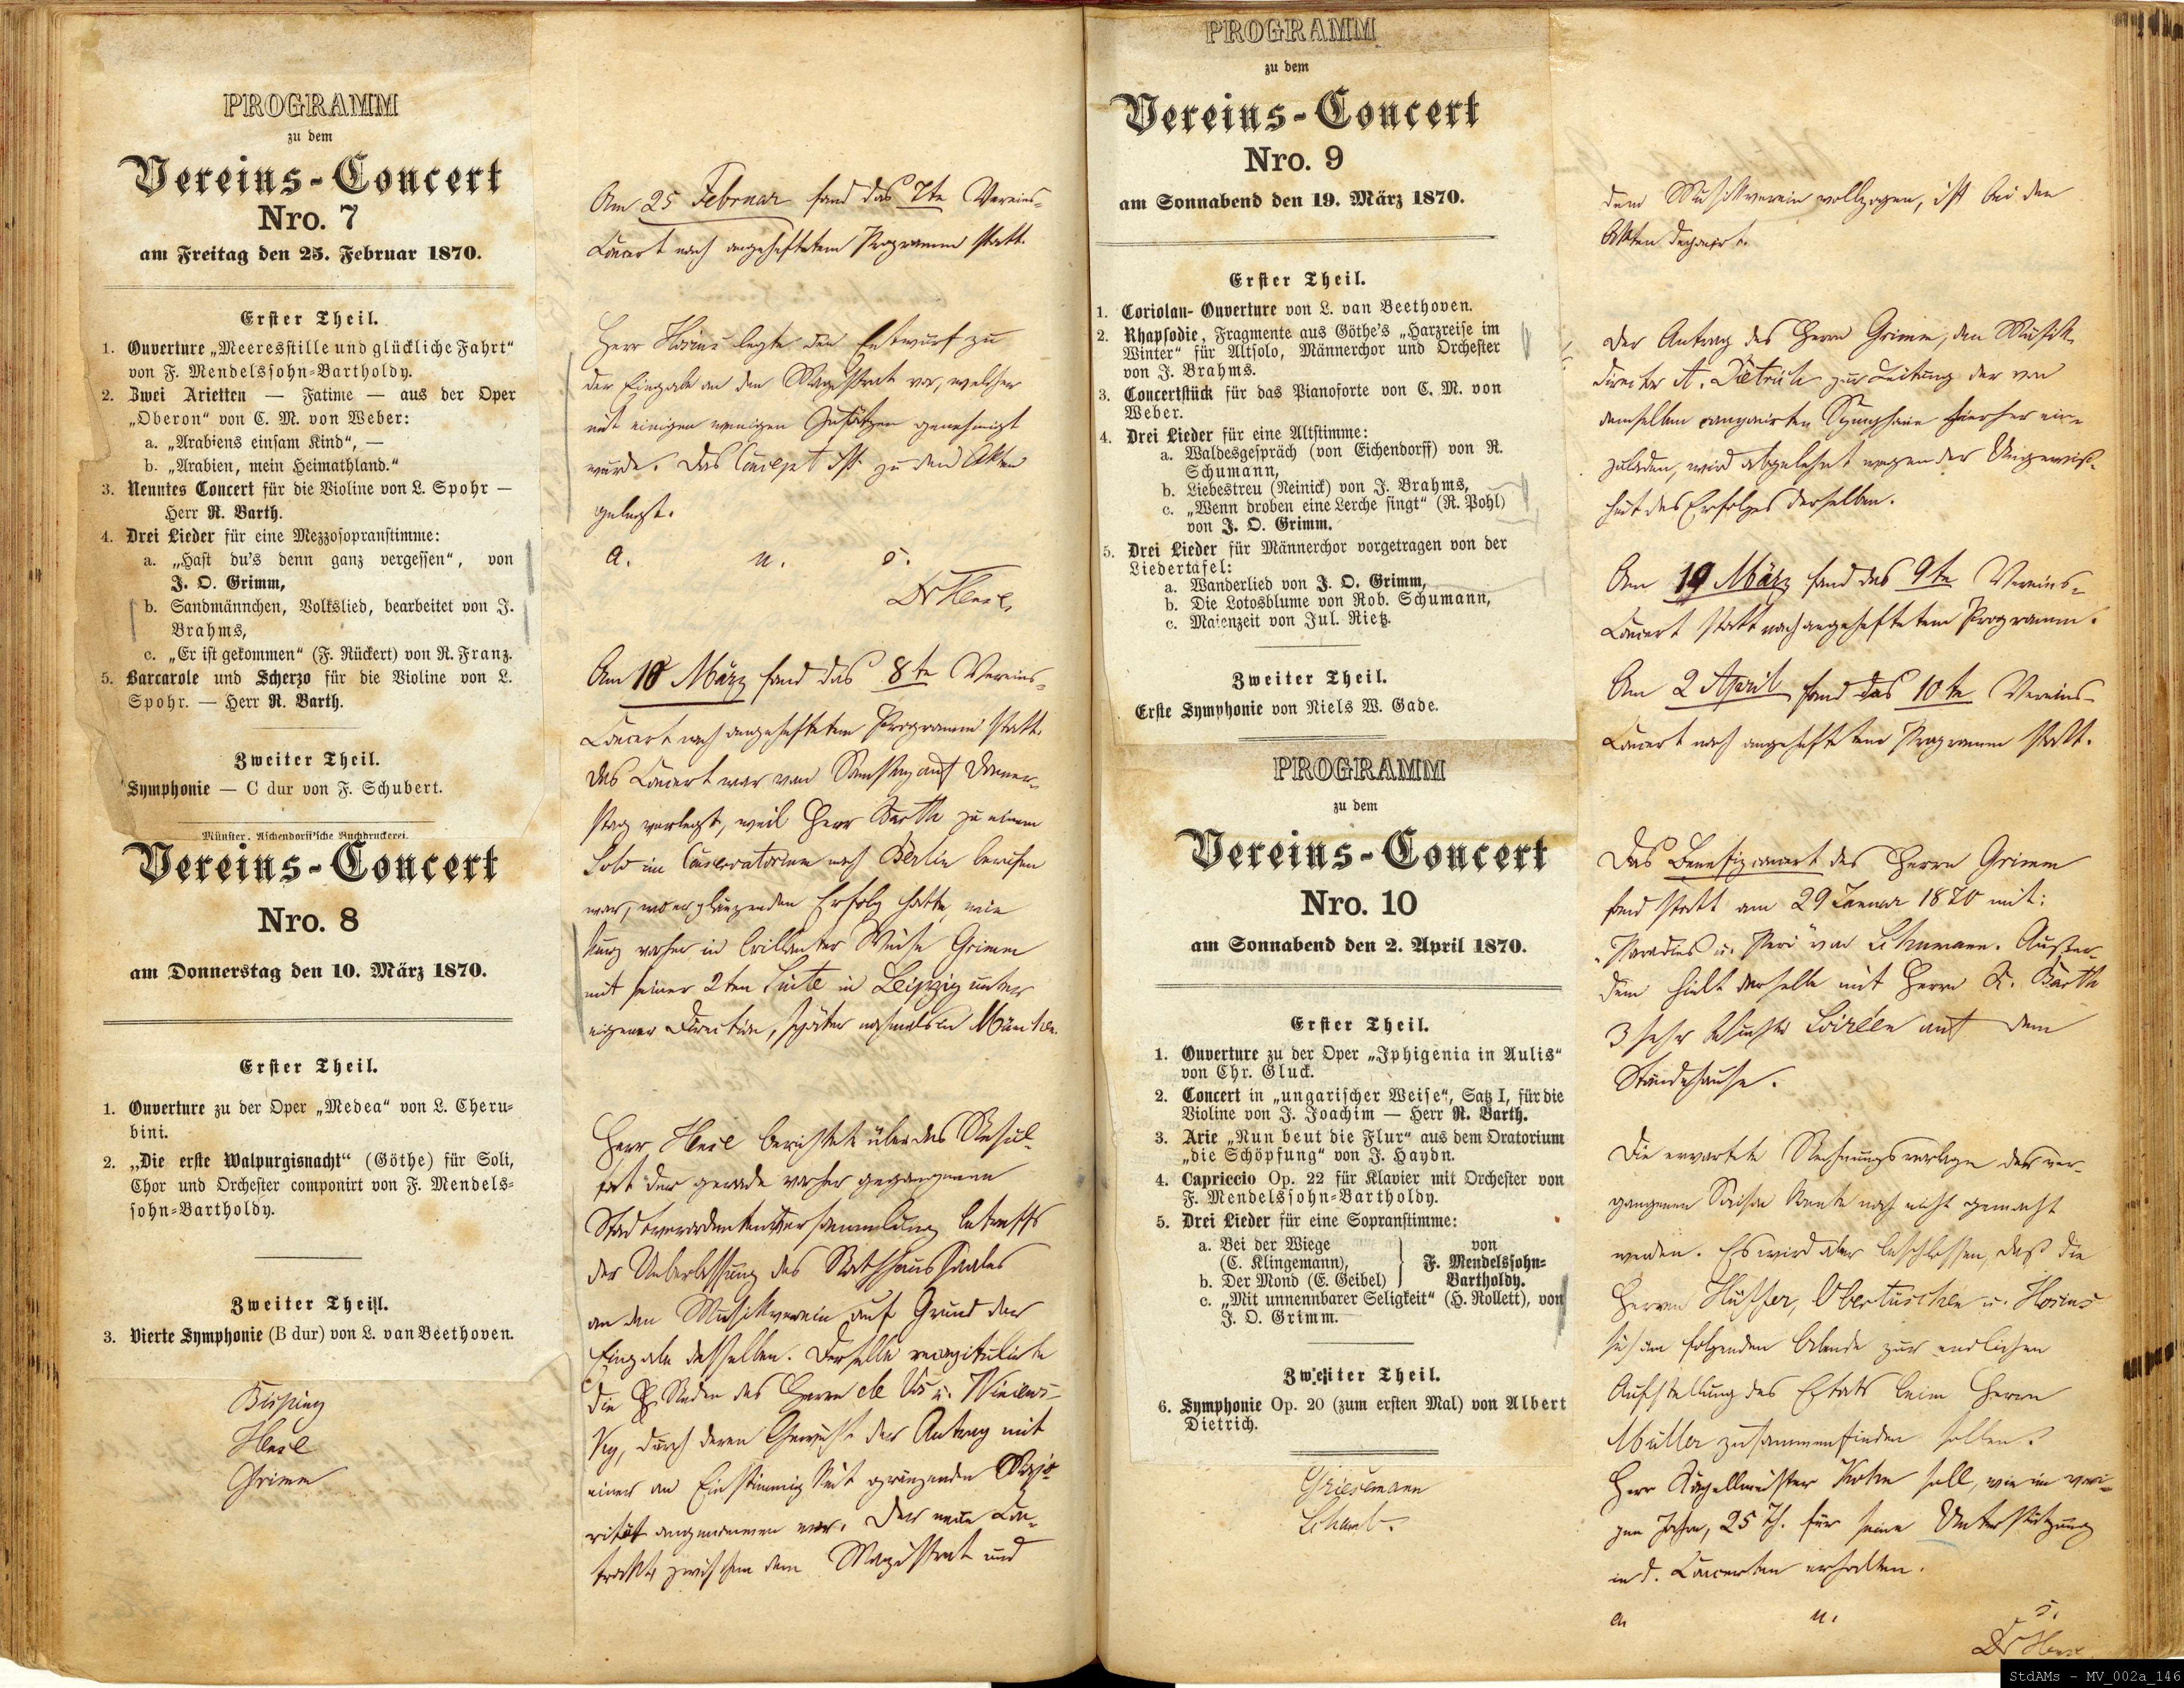 PROGRAMM
zu dem
Vereins-Concert
Nro. 7
am Freitag den 25. Februar 1870.
Erster Theil.
1. Ouverture „Meeresstille und glückliche Fahrt“
von F. Mendelssohn-Bartholdy.
2. Zwei Arietten — Fatime — aus der Oper
„Oberon“ von C. M. von Weber:
a. „Arabiens einsam Kind“, —
b. „Arabien, mein Heimathland.“
3. Neuntes Concert für die Violine von L. Spohr —
Herr R. Barth.
4. Drei Lieder für eine Mezzosopranstimme:
a. „Hast du's denn ganz vergessen“, von
J. O. Grimm,
b. Sandmännchen, Volkslied, bearbeitet von J.
Brahms,
c. „Er ist gekommen“ (F. Rückert) von R. Franz.
5. Barcarole und Scherzo für die Violine von L.
Spohr. — Herr R. Barth.
Zweiter Theil.
Symphonie — C dur von F. Schubert.
Münster. Aschendorff'sche Buchdruckerei.
Vereins-Concert
Nro. 8
am Donnerstag den 10. März 1870.
Erster Theil.
1. Ouverture zu der Oper „Medea“ von L. Cheru-
bini.
2. „Die erste Walpurgisnacht“ (Göthe) für Soli,
Chor und Orchester componirt von F. Mendels-
sohn-Bartholdy.
Zweiter Theil.
3. Vierte Symphonie (B dur) von L. van Beethoven.
Bisping
Hase
Grimm
Am 25 Februar fand das 7te Vereins-
Concert nach angeheftetem Programm statt.
Herr Hosius legte den Entwurf zu
der Eingabe an den Magistrat vor, welcher
mit einigen wenigen Zusätzen genehmigt
wurde. Das Concept ist zu den Akten
gelegt.
a. u. s.
Dr Hase
Am 10 März fand das 8te Vereins-
Concert nach angeheftetem Programm statt.
Das Concert war von Samstag auf Donner-
stag verlegt, weil Herr Barth zu einem
Solo im Conservatorium nach Berlin berufen
war, wo er glänzenden Erfolg hatte, wie
kurz vorher in brillanter Weise Grimm
mit seiner 2ten Suite in Leipzig unter
eigener Direction, später nochmals in München.
Herr Hase berichtet über das Resul-
tat der gerade vorher gegangenen
Stadtverordnetenversammlung betreffs
der Ueberlassung des Rathhaussaales
an den Musikverein auf Grund der
Eingabe desselben. Derselbe recapitulirte
die Reden des Herrn de Vos u.
durch deren Gewicht der Antrag mit
einer an Einstimmigkeit grenzenden Majo-
rität angenommen war. Der neue Con-
trakt, zwischen dem Magistrat und
PROGRAMM
zu dem
Vereins-Concert
Nro. 9
am Sonnabend den 19. März 1870.
Erster Theil.
1. Coriolan- Ouverture von L. van Beethoven.
2. Rhapsodie, Fragmente aus Göthe's „Harzreise im
Winter“ für Altsolo, Männerchor und Orchester
von J. Brahms.
3. Concertstück für das Pianoforte von C. M. von
Weber.
4. Drei Lieder für eine Altstimme:
a. Waldesgespräch (von Eichendorff) von R.
Schumann,
b. Liebestreu (Reinick) von J. Brahms,
c. „Wenn droben eine Lerche singt“ (R. Pohl)
von J. O. Grimm.
5. Drei Lieder für Männerchor vorgetragen von der
Liedertafel:
a. Wanderlied von J. O. Grimm,
b. Die Lotosblume von Rob. Schumann,
c. Maienzeit von Jul. Rietz.
Zweiter Theil.
Erste Symphonie von Niels W. Gade.
PROGRAMM
zu dem
Vereins-Concert
Nro. 10
am Sonnabend den 2. April 1870.
Erster Theil.
1. Ouverture zu der Oper „Iphigenia in Aulis“
von Chr. Gluck.
2. Concert in „ungarischer Weise“, Satz I, für die
Violine von J. Joachim — Herr R. Barth.
3. Arie „Nun beut die Flur“ aus dem Oratorium
„die Schöpfung“ von J. Haydn.
4. Capriccio Op. 22 für Klavier mit Orchester von
F. Mendelssohn-Bartholdy.
5. Drei Lieder für eine Sopranstimme:
a. Bei der Wiege
(C. Klingemann),
b. Der Mond (E. Geibel)
von
F. Mendelssohn-
Bartholdy.
c. „Mit unnennbarer Seligkeit“ (H. Rollett), von
J. O. Grimm.
Zweiter Theil.
6. Symphonie Op. 20 (zum ersten Mal) von Albert
Dietrich.
Griesemann
Schaub.
dem Musikverein vollzogen, ist bei den
Akten deponirt.
Der Antrag des Herrn Grimm, den Musik-
director A. Dietrich zur Leitung der von
demselben componirten Symphonie hierher ein-
zuladen, wird abgelehnt wegen der Ungewiß-
heit des Erfolges derselben.
Am 19 März fand das 9te Vereins-
Concert statt nach angeheftetem Programm.
Am 2 April fand das 10te Vereins-
Concert nach angeheftetem Programm statt.
Das Benefizconcert des Herrn Grimm
fand statt am 29 Januar 1870 mit:
„Paradies u. Peri“ von Schumann. Außer-
dem hielt derselbe mit Herrn R. Barth
3 sehr besuchte Soiréen auf dem
Ständehause.
Die erwartete Rechnungsvorlage der ver-
gangenen Saison konnte noch nicht gemacht
werden. Es wird aber beschlossen, daß die
Herren Hüffer, Obertüschen u. Hosius
sich am folgenden Abende zur endlichen
Aufstellung des Etats beim Herrn
Müller zusammenfinden sollen.
Herr Kapellmeister soll, wie im vori-
gen Jahre, 25 Th. für seine Unterstützung
in d. Concerten erhalten.
a. u. s.
Dr Hase
StdAMs - MV_002a_146